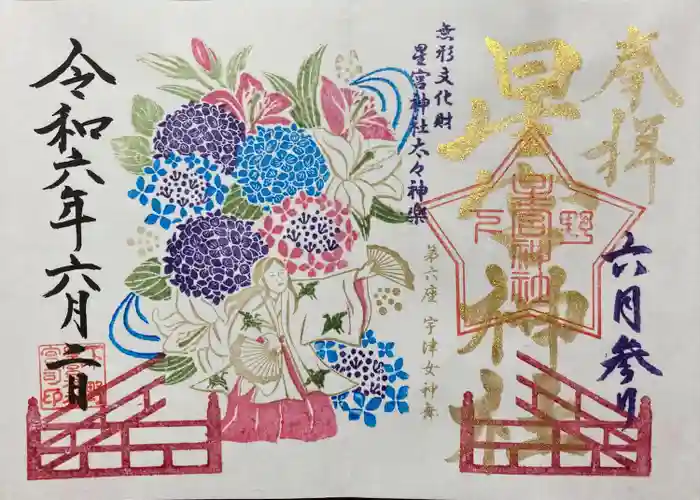 奉拝
六月参り
星宮神社
下野
星宮神社
無形文化財
星宮神社太々神楽
第六座 宇津女神舞
令和六年六月二日